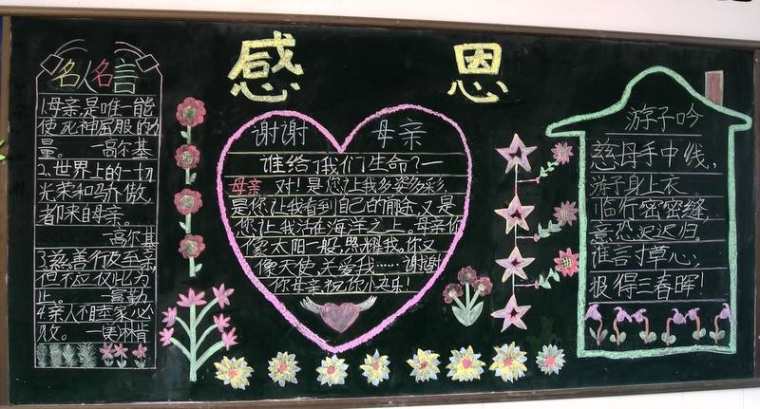 感 恩
名人名言
1.母亲,是唯一能
使死神屈服的力
量。 —高尔基
2.世界上的一切
光荣和骄傲,
都来自母亲。
高尔基
止。
4.亲人不睦家必
败。 —美 林肯
谢谢 母亲
谁给了我们生命?—
母亲 对!是您让我多姿多彩,
是您让我看到自己的前途,又是
您让我活在海洋之上,母亲你
像太阳一般,照耀我。你又
像天使,关爱我……谢谢
你母亲祝你小安乐!
游子吟
慈母手中线,
游子身上衣
临行密密缝,
意恐迟迟归,
谁言寸草心,
报得三春晖!